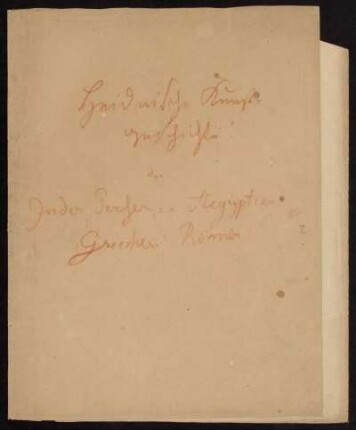 Heidnische Kunst-
geschichte
der
Inder Perser, Aegyptier
Griechen Römer